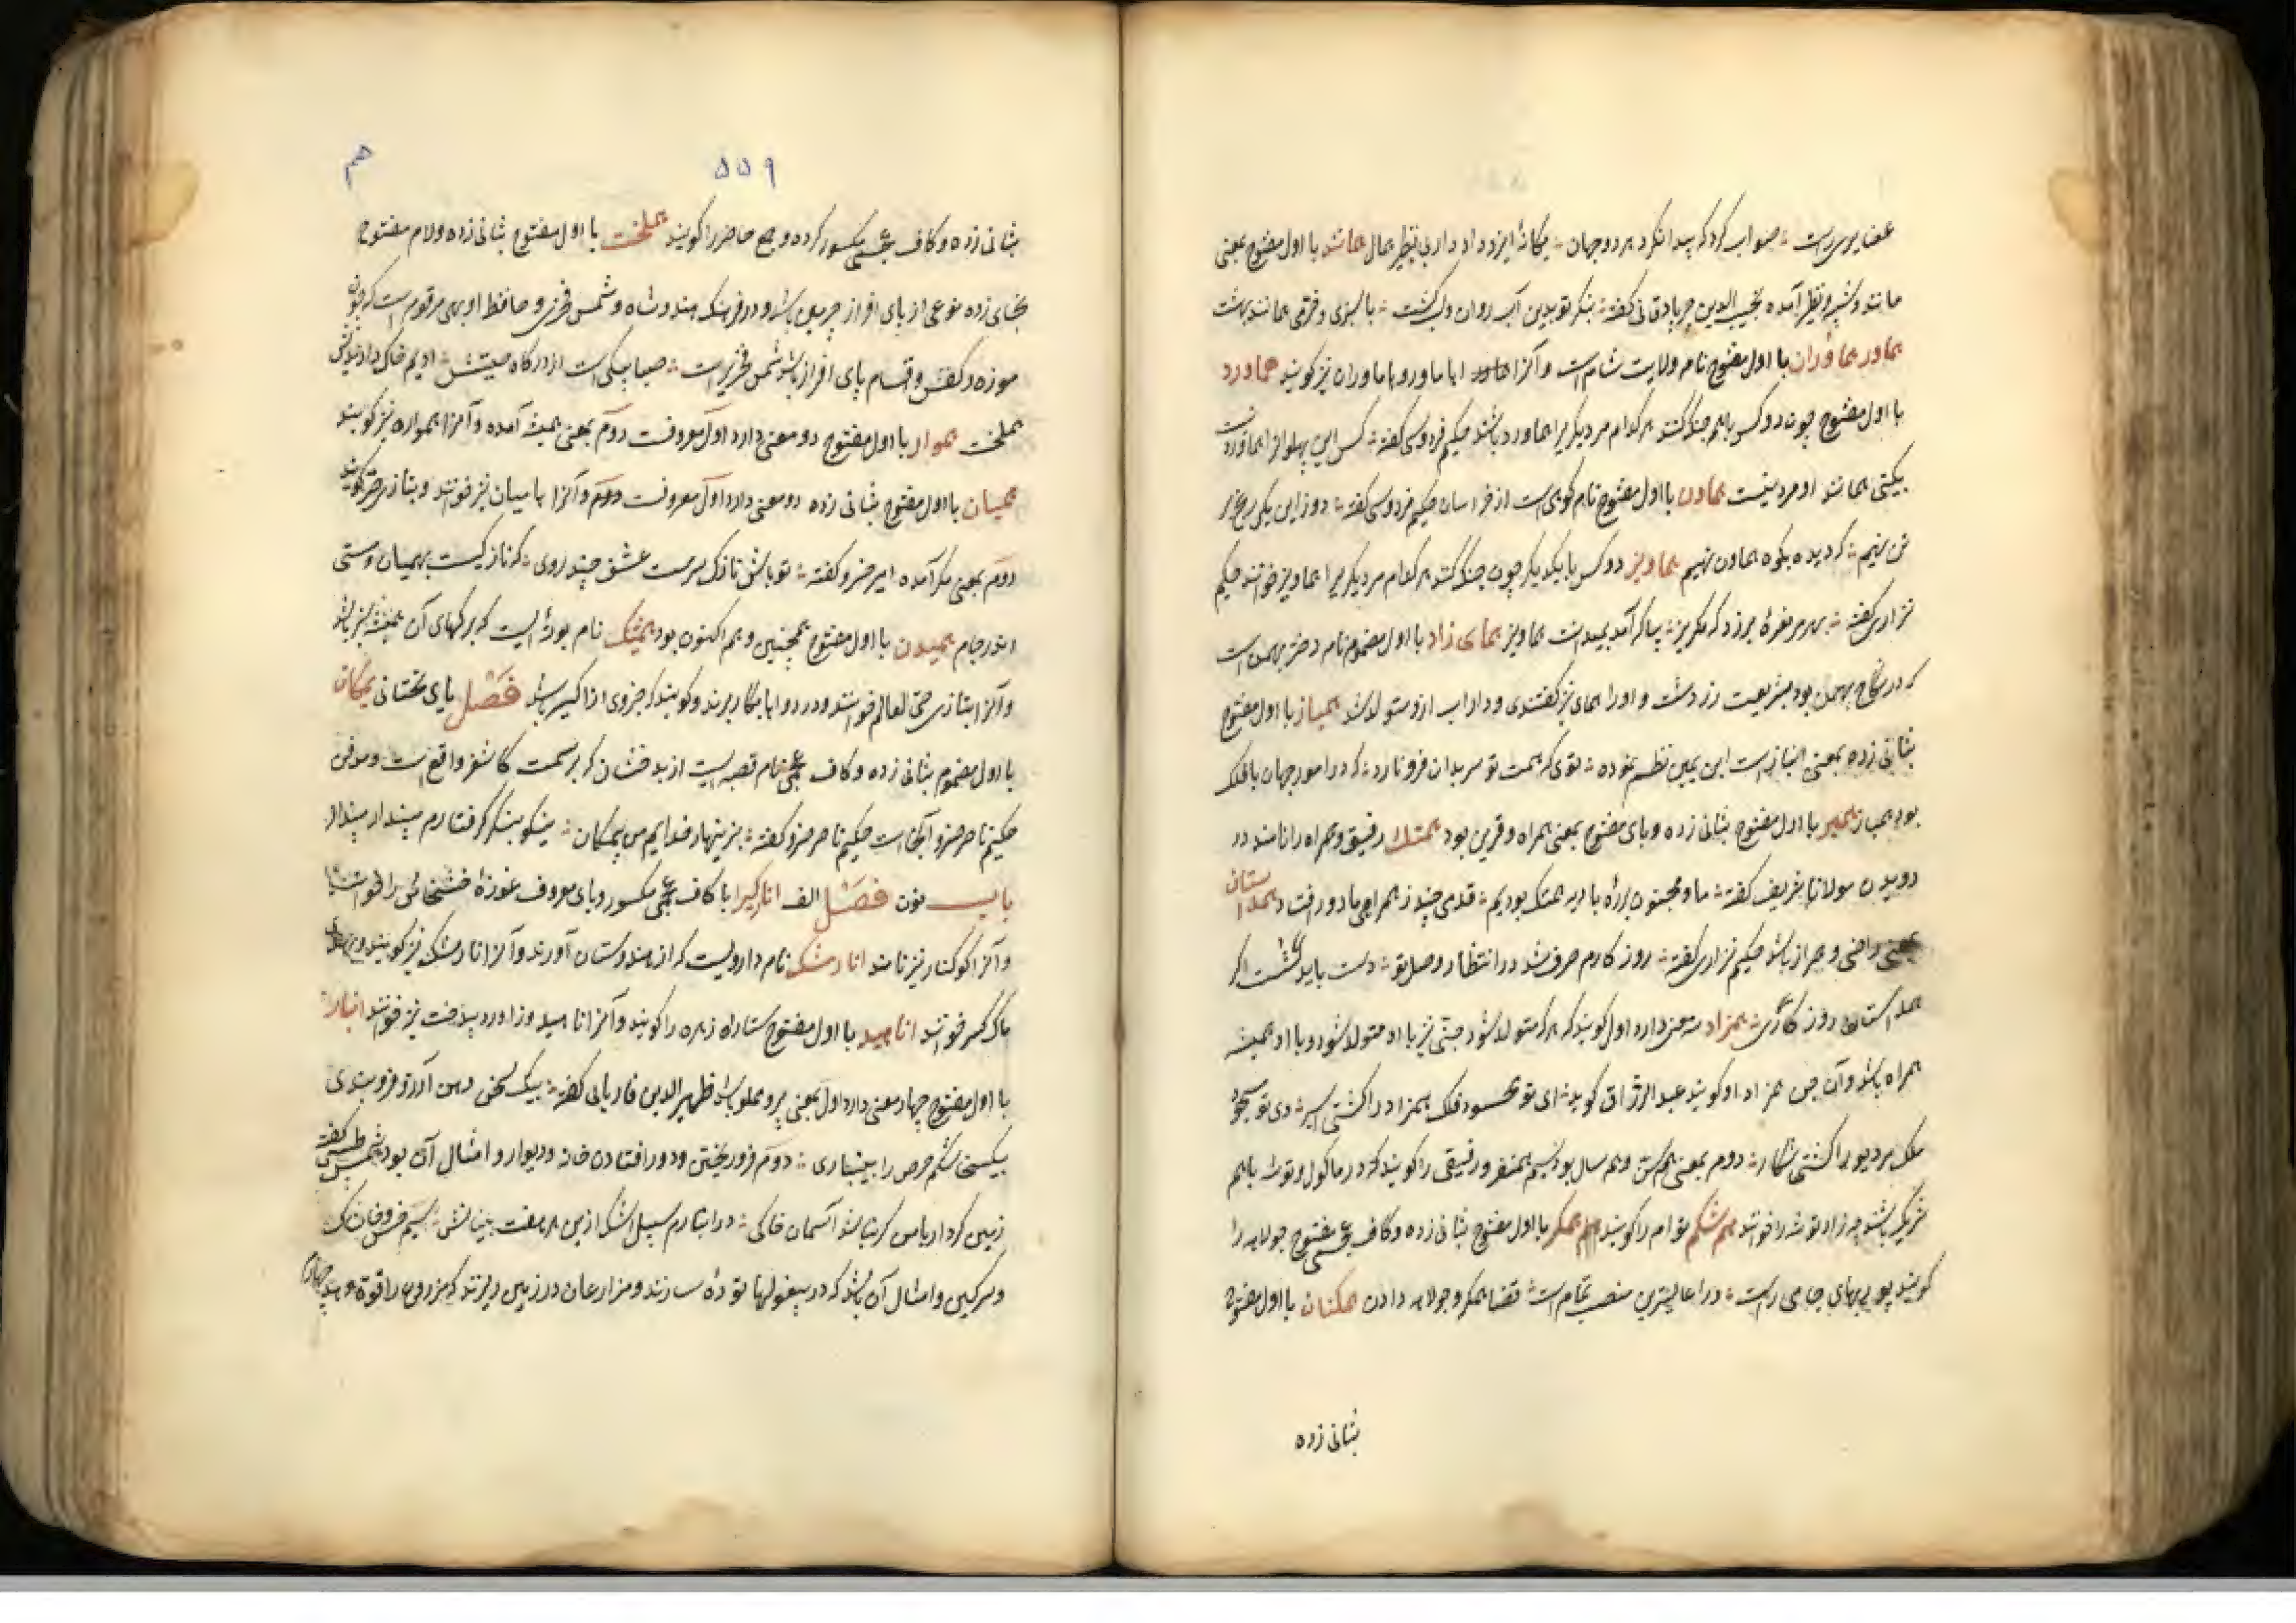 صواب کرد که پیدا نکرد هر دو جهان ؞ یگانه ایزد دادار بی نظیر همال همانند با اول مفتوح بمعنی
مانند و شبیه و نظیر آمده نجیب الدین جرباد قانی گفته ؞ بنگر تو بدین آب روان و لب کشت ؞ با سبزی و خرمی همانند بهشت
هماور هماوران با اول مفتوح نام ولایت شام است و آنرا هاماور و هاماوران نیز گویند هماورد
با اول مفتوح چون دو کس باهم جنگ کنند هر کدام مر دیگر را هماورد باشند حکیم فردوسی گفته ؞ کس این پهلوانرا هماورد نیست
بگیتی همانند او مرد نیست هماون با اول مفتوح نام کوهی است از خراسان حکیم فردوسی گفته ؞ دوز این یکی
کوه هماون نهیم هماویز دو کس با یکدیگر چون جنگ کنند هر کدام مر دیگر را هماویز خوانند حکیم
نزاری گفته ؞ هماویز همای زاد با اول مضموم نام دختر بهمن است
که در نکاح بهمن بود بشریعت زردشت و اورا همای نیز گفتندی و داراب ازو متولد شد همباز با اول مفتوح
بثانی زده بمعنی انباز است ابن یمین نظم نموده ؞ توی که همت تو سر بدان فرو نارد ؞ که در امور جهان با فلک
بود همباز همبر با اول مفتوح بثانی زده و بای مفتوح بمعنی همراه و قرین بود همتک رفیق و همراه را نامند در
دویدن مولانا شریف گفته ؞ ما و مجنون بره بادیه همتک بودیم ؞ قدمی چند ز همراهی ما دور افتاد همداستان
بمعنی راضی و همراز باشد حکیم نزاری گفته ؞ روز کارم صرف شد در انتظار وصل تو ؞ دست باید گشت اگر
همداستان روز همزاد سه معنی دارد اول گویند که هر که متولد شود جنی نیز با او متولد شود و با او همیشه
همراه باشد و آن جن همزاد او گویند عبد الرزاق گوید ؞ ای تو محسود فلک همزاد
ملک بر دیو را کشتی شکار ؞ دوم بمعنی هم سن و هم سال بود سیم همسفر و رفیقی را گویند که در ماکول و توشه باهم
شریک باشند چه زاد توشه را خوانند هم شکم توام را گویند همگر با اول مفتوح بثانی زده و کاف عجمی مفتوح جولاهه را
گویند پور بهای جامی راست ؞ در اعالیترین منصب تمام است ؞ قضا همگر و جولاهه دادن همکنان با اول مفتوح
بثانی زده
۵۵۹
هم
بثانی زده و کاف عجمی مکسور کرده و جمع حاضر را گویند هملخت با اول مفتوح بثانی زده و لام مفتوح
بخای زده نوعی از پای افزار چرمین باشد و در فرهنگ هندوشاه و شمس فخری و حافظ اوبهی مرقوم است که
موزه و کفش و اقسام پای افزار باشد شمس فخری راست ؞ صبا پیکی است از درگاه جیشش ؞ ادیم خاک دارد
هملخت هموار با اول مفتوح دو معنی دارد اول معروفست دوم بمعنی همیشه آمده و آنرا همواره نیز گویند
همیان با اول مفتوح بثانی زده دو معنی دارد اول معروفست و آنرا هامیان نیز خوانند و بتازی صره گویند
دوم بمعنی کمر آمده امیر خسرو گفته ؞ تو باش نازک سرمست عشق چند روی ؞ که نازکیست بهمیان و ستی
اندر جام همیدون با اول مفتوح همچنین و هم اکنون بود همیشک نام بوته ایست که برگهای آن همیشه سبز باشد
و آنرا بتازی حی العالم خوانند و در دواها بکار برند و گویند که جزوی از اکسیر باشد فصل یای تحتانی یمگان
با اول مضموم بثانی زده و کاف عجمی نام قصبه ایست از بدخشان که بر سمت کاشغر واقع است و مدفن
حکیم ناصر خسرو آنجاست حکیم ناصر خسرو گفته ؞ بزینهار خدایم من بیمگان ؞ نیکو بنگر گرفتارم مپندار مپندار
باب نون فصل الف انارگیرا با کاف عجمی مکسور و یای معروف غوزه خشخاش را خوانند
و آنرا کوکنار نیز نامند انارمشک نام دارویست که از هندوستان آورند و آنرا نارمشک نیز گویند
ماک کسر خوانند اناهید با اول مفتوح ستاره زهره را گویند و آنرا ناهید و زاور و بیدخت نیز خوانند انبار
با اول مفتوح چهار معنی دارد اول بمعنی پر و مملو باشد ظهیر الدین فاریابی گفته ؞ بیک سخن دهن آرزو فرو بندی
بیک سخا شکم حرص را بینباری ؞ دوم فرو ریختن و دور افتادن خانه و دیوار و امثال آن بود شمس طبسی گفته
زمین کردار یاس آسمان خاکی ؞ در انبارم سیل اشک ازین هر هفت بنیانش ؞ سیم خس و خاشاک
و سرگین و امثال آن باشد که در بیغولها توده سازند و مزارعان در زمین ریزند که مزروع را قوة دهد چهارم